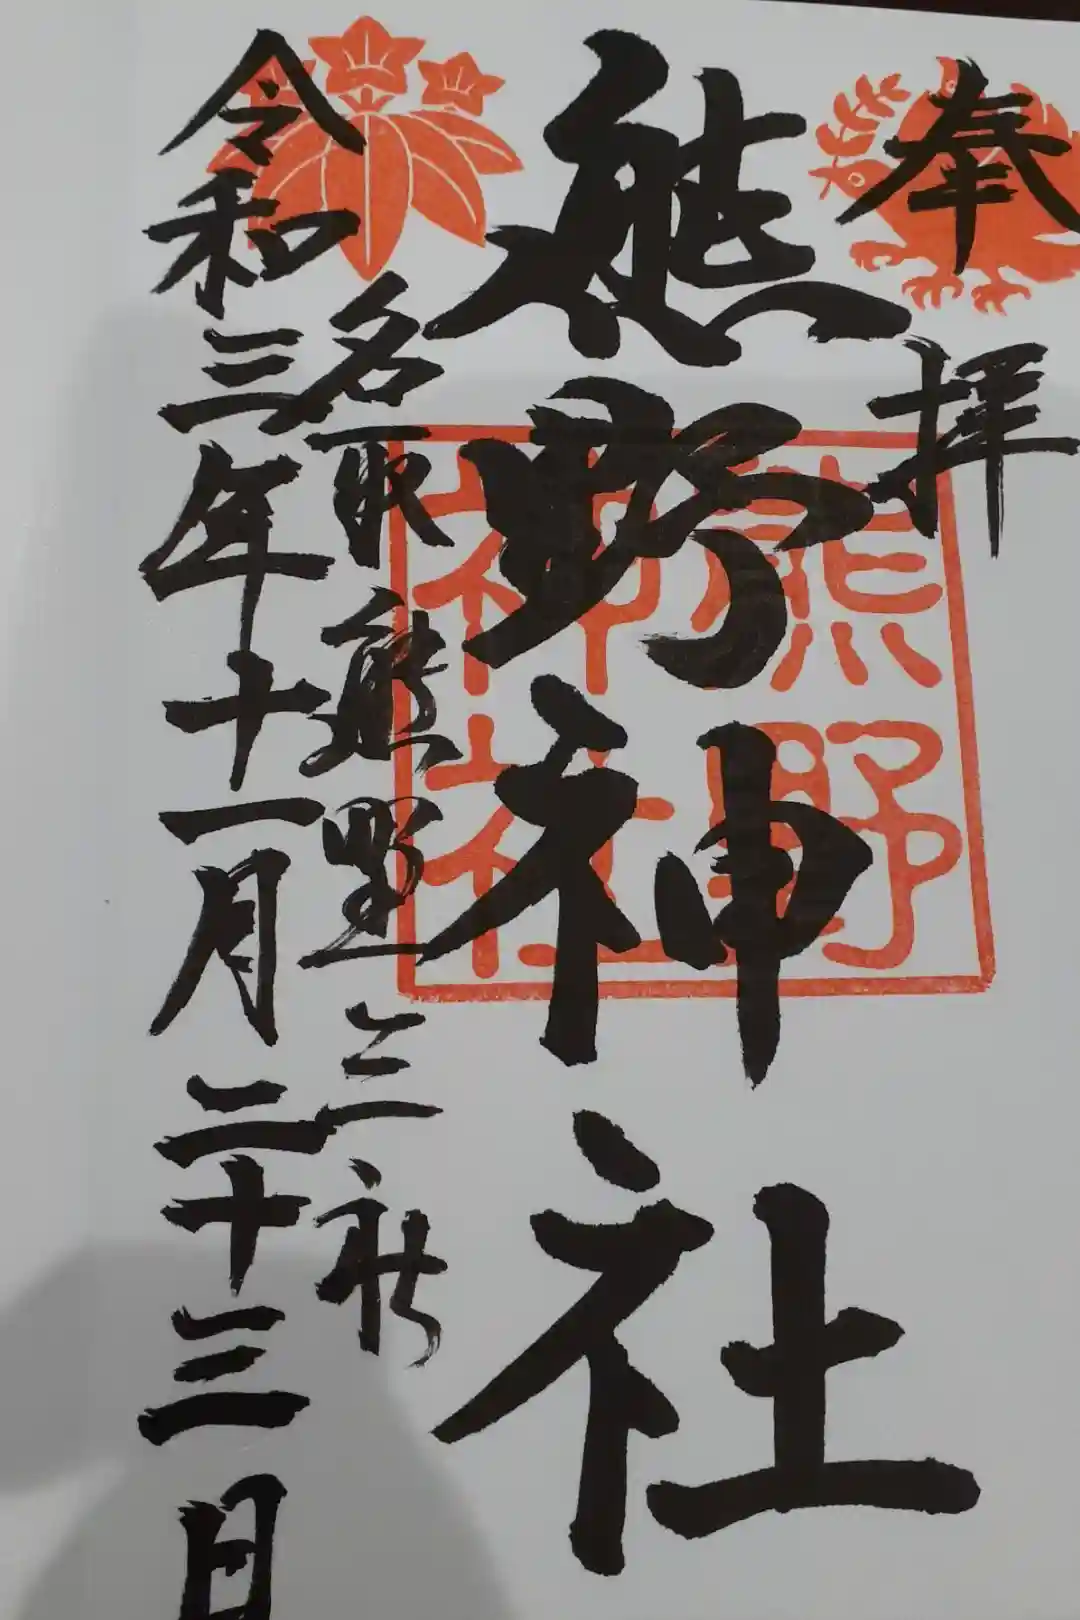 奉拝
熊野神社
熊野
神社
名取熊野三社
令和三年十一月二十三日